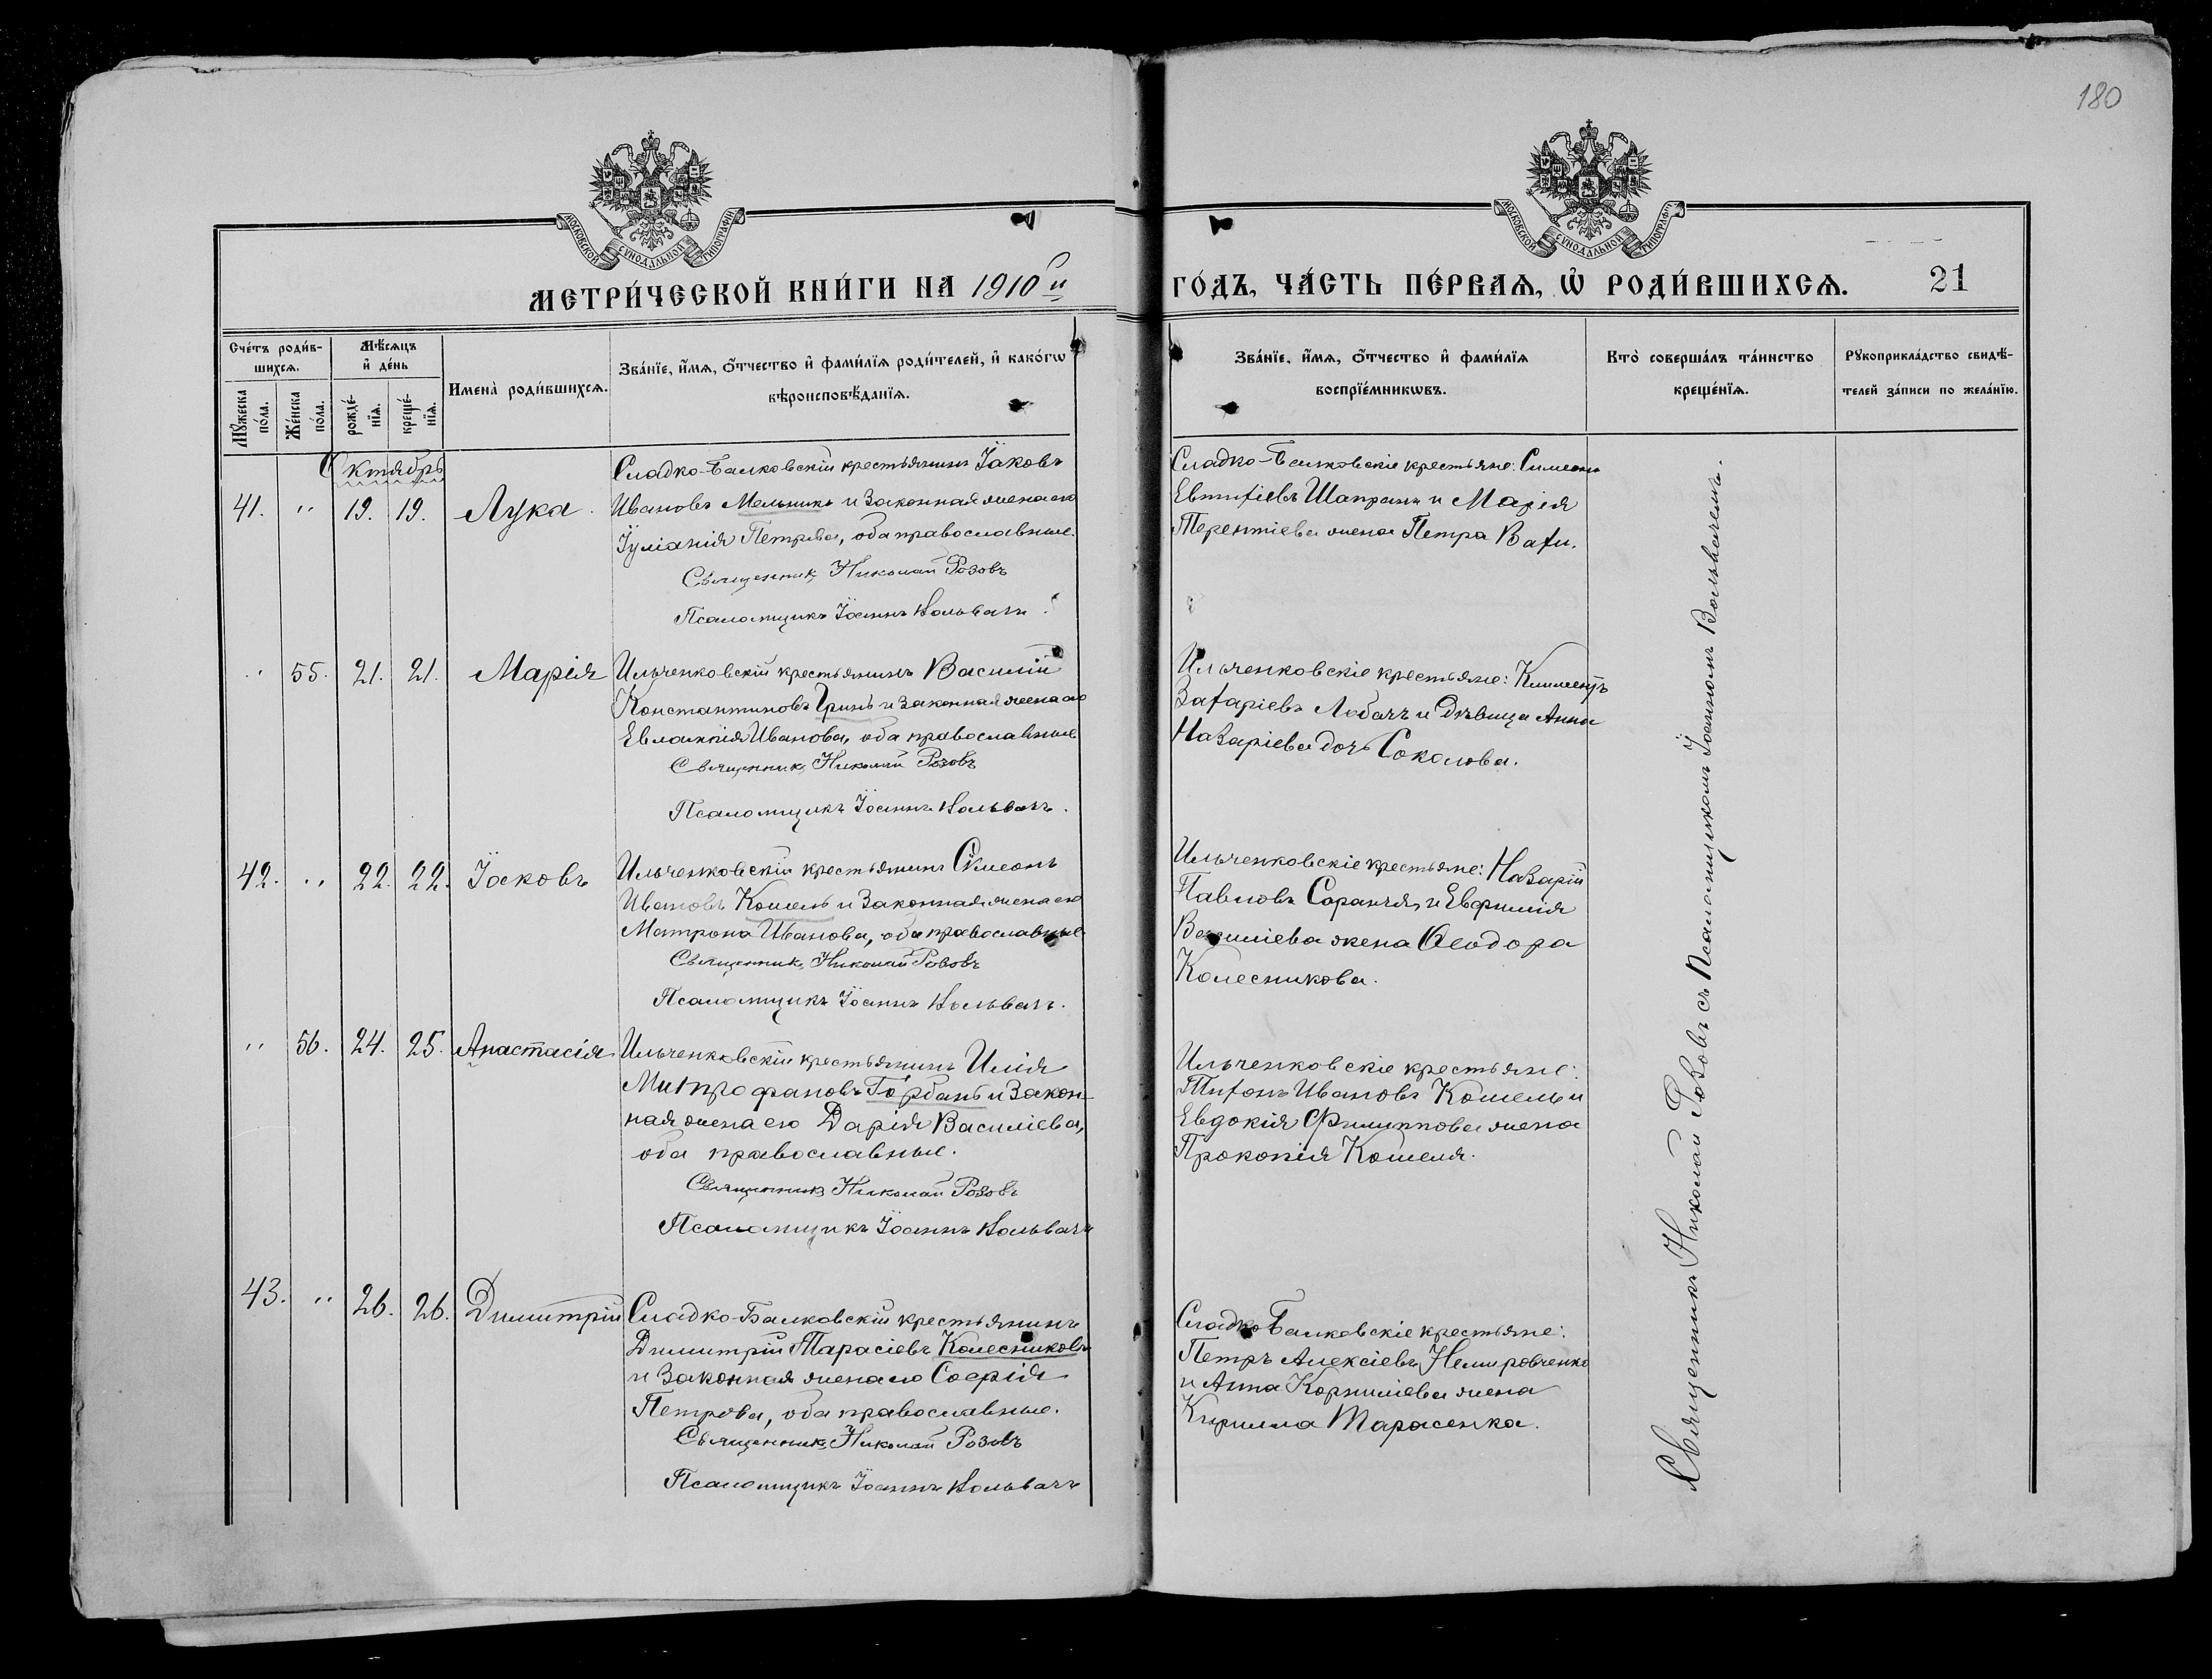 180
МОСКОВСКОЙ СѴНОДАЛЬНОЙ ТИПОГРАФІИ
МОСКОВСКОЙ СѴНОДАЛЬНОЙ ТИПОГРАФІИ
МЕТРИ́ЧЕСКОЙ КНИ́ГИ НА 1910й
ГО́ДЪ, ЧА́СТЬ ПЕ́РВАѦ, Ѡ҆ РОДИ́ВШИХСѦ. 21
Сче́тъ роди́в-
шихсѧ.
Мꙋ́жеска
по́ла.
Же́нска
по́ла.
Мѣ́сѧцъ
и҆ де́нь
рожде́-
нїѧ.
креще́-
нїѧ.
Имена̀ роди́вшихсѧ.
Зва́нїе, и҆́мѧ, ѻ҆́тчество и҆ фами́лїѧ роди́телей, и҆ како́гѡ
вѣроисповѣ́данїѧ.
Зва́нїе, и҆́мѧ, ѻ҆́тчество и҆ фами́лїѧ
воспрїе́мникѡвъ.
Кто̀ соверша́лъ та́инство
креще́нїѧ.
Рꙋкоприкла́дство свидѣ́-
телей за́писи по жела́нїю.
Октябрь
41. " 19. 19. Лука.
Сладко-Балковскій крестьянинъ Їаковъ
Ивановъ Мельникъ и законная жена его
Їуліанія Петрова, оба православные.
Священникъ Николай Розовъ
Псаломщикъ Їоаннъ Вольвачъ.
Сладко-Балковскіе крестьяне: Симеонъ
Евтихіевъ Шапранъ и Марія
Терентіева жена Петра Вахи.
" 55. 21. 21. Марія
Ильченковскій крестьянинъ Василій
Константиновъ Гринь и законная жена его
Евлампія Иванова, оба православные
Священникъ Николай Розовъ
Псаломщикъ Їоаннъ Вольвачъ.
Ильченковскіе крестьяне: Климентъ
Захаріевъ Лобачъ и дѣвица Анна
Назаріева дочь Соколова.
42. " 22. 22. Їаковъ
Ильченковскій крестьянинъ Симеонъ
Ивановъ Кошель и законная жена его
Матрона Иванова, оба православные
Священникъ Николай Розовъ
Псаломщикъ Їоаннъ Вольвачъ.
Ильченковскіе крестьяне: Назарій
Павловъ Саранча, и Евфимія
Василіева жена Ѳеодора
Колесникова.
" 56. 24. 25. Анастасія
Ильченковскій крестьянинъ Илія
Митрофановъ Горбань и закон-
ная жена его Дарія Василіева,
оба православные.
Священникъ Николай Розовъ
Псаломщикъ Їоаннъ Вольвачъ
Ильченковскіе крестьяне:
Тихонъ Ивановъ Кошель и
Евдокія Филиппова жена
Прокопія Кошеля.
43. " 26. 26. Димитрій
Сладко-Балковскій крестьянинъ
Димитрій Тарасіевъ Колесниковъ
и законная жена его Софія
Петрова, оба православные.
Священникъ Николай Розовъ
Псаломщикъ Їоаннъ Вольвачъ
Сладко-Балковскіе крестьяне:
Петръ Алексіевъ Немировченко
и Анна Корниліева жена
Кирилла Тарасенка.
Священникъ Николай Розовъ съ Псаломщикомъ Їоанномъ Вольвачемъ.